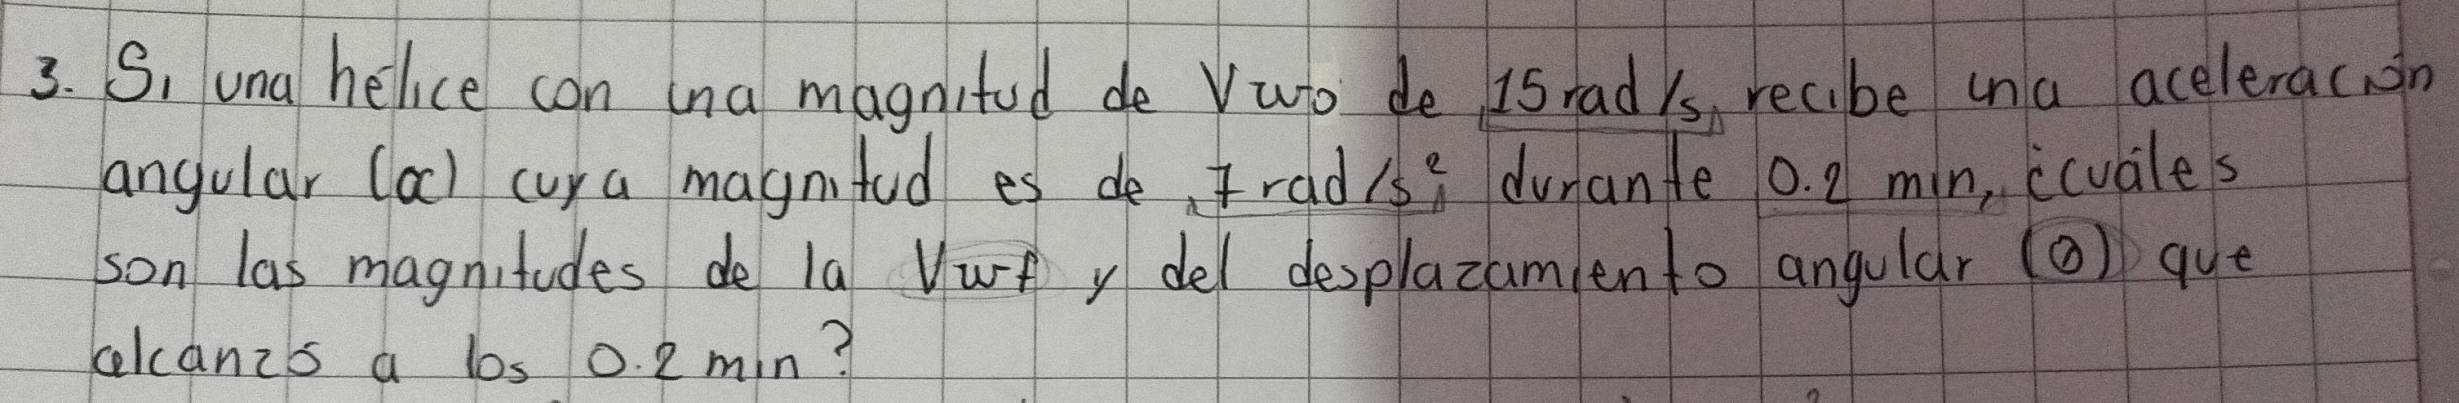 3. Si una hélice con una magnitud de Vwo de 15 rad/s, recibe una aceleración
angular (α) cuya magnitud es de 7 rad/s² durante 0.2 min, ¿cuáles
son las magnitudes de la Vwf y del desplazamiento angular (θ) que
alcanzó a los 0.2 min?